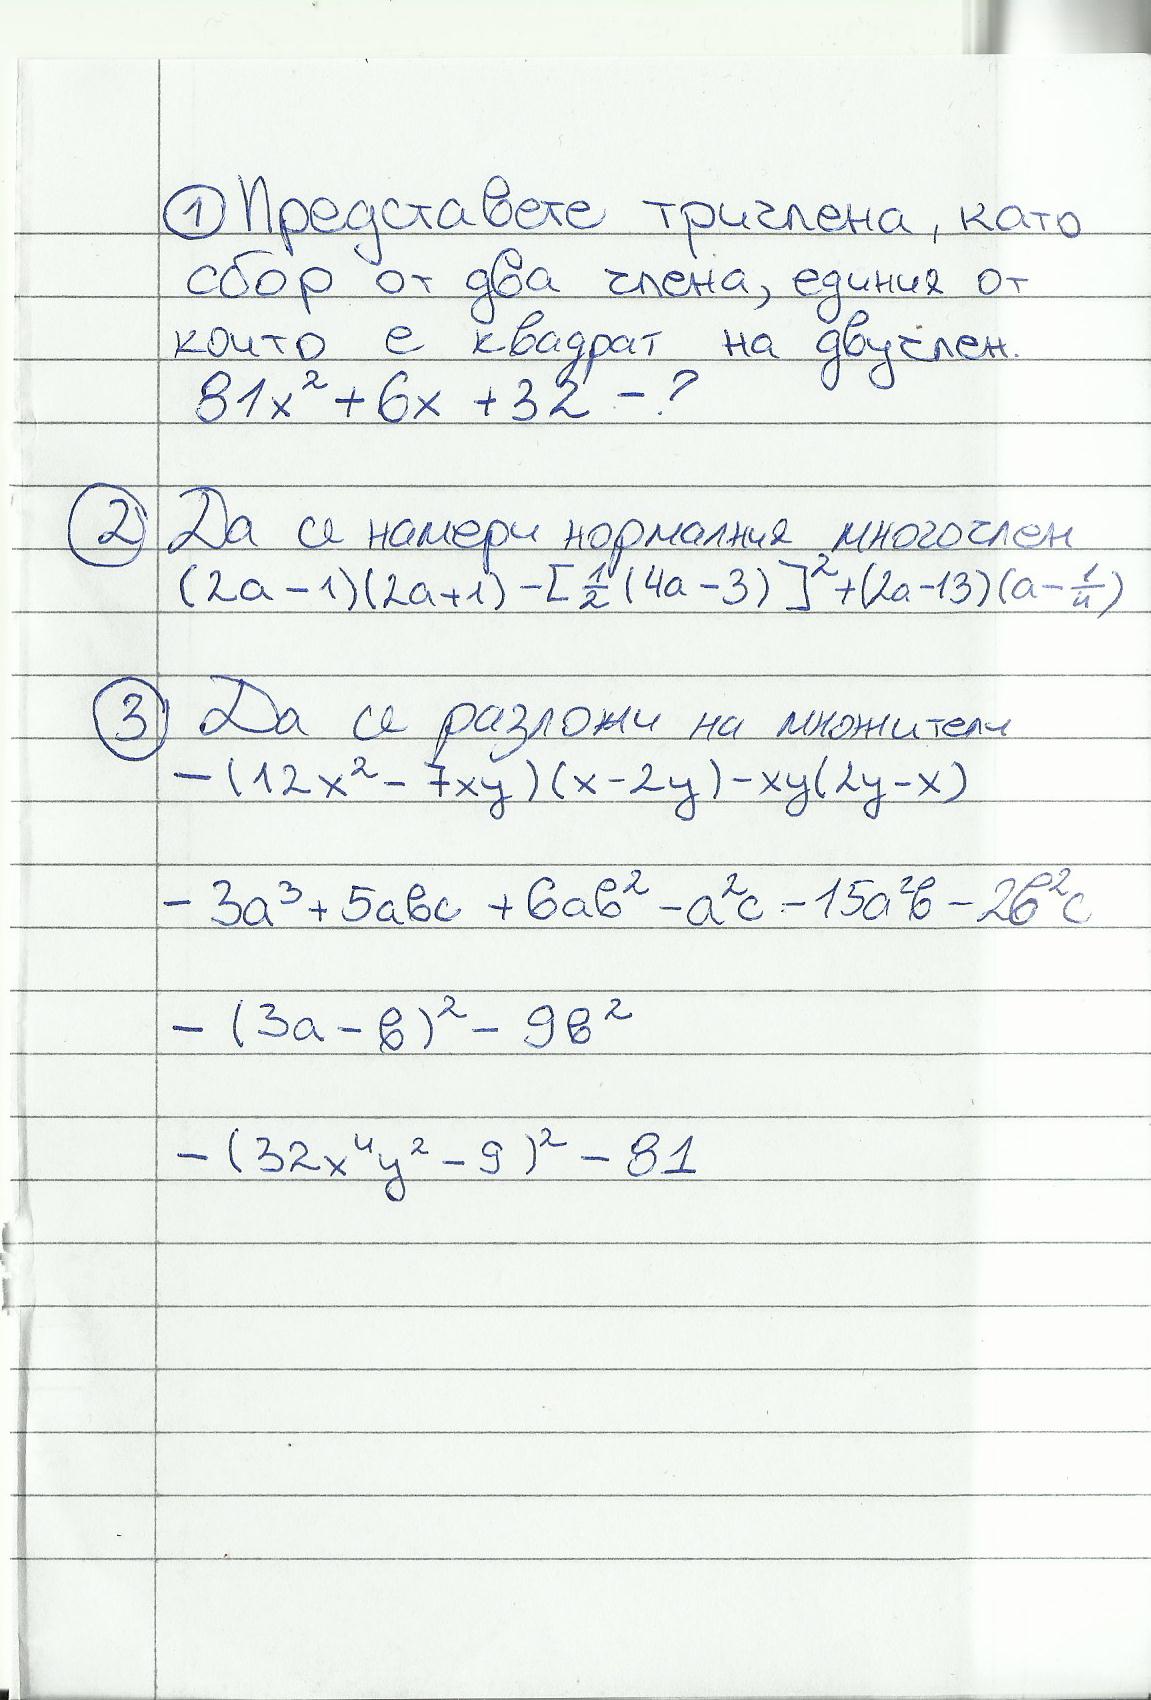 ① Представете тричлена, като
сбор от два члена, единия от
които е квадрат на двучлен.
81x² + 6x + 32 - ?
② Да се намери нормалния многочлен
(2a - 1)(2a + 1) - [½(4a - 3)]² + (2a - 13)(a - ¼)
③ Да се разложи на множители
- (12x² - 7xy)(x - 2y) - xy(2y - x)
- 3a³ + 5aвc + 6aв² - a²c - 15a²в - 2в²c
- (3a - в)² - 9в²
- (32x⁴y² - 9)² - 81